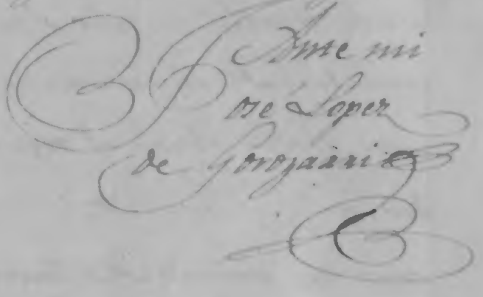 Ante mi
José Lopez
de Gorozarri